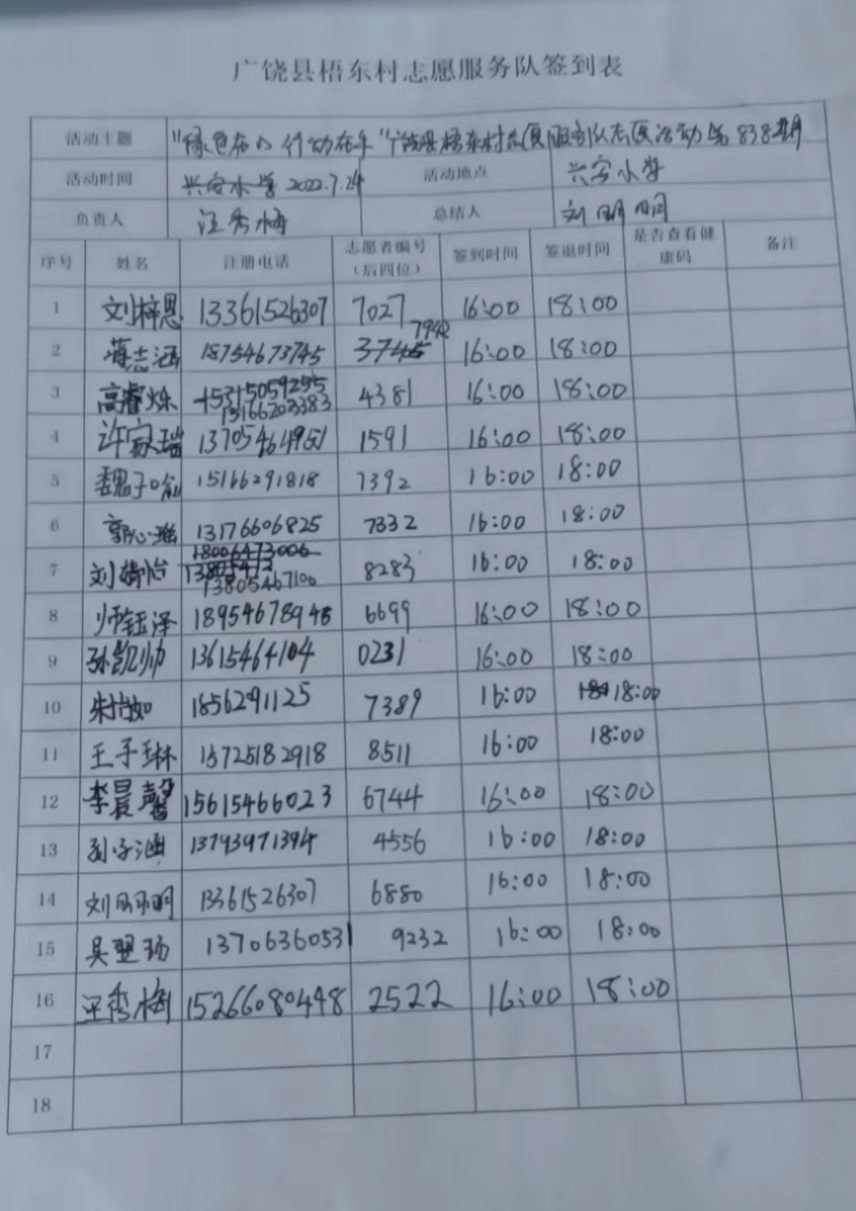 广饶县梧东村志愿服务队签到表
活动主题 "绿色在心 行动在手"广饶县梧东村志愿服务队志愿活动第838期
活动时间 兴安小学 2022.7.24 活动地点 兴安小学
负责人 汪秀梅 总结人 刘明明
序号 姓名 注册电话 志愿者编号（后四位） 签到时间 签退时间 是否查看健康码 备注
1 刘梓恩 13361526307 7027 16:00 18:00
2 蒋志涵 18754673745 7942 16:00 18:00
3 高睿烁 15315059255 15166203383 4381 16:00 18:00
4 许家瑞 13705464951 1591 16:00 18:00
5 魏子喻 15166291818 7392 16:00 18:00
6 郭心瑶 13176606825 7332 16:00 18:00
7 刘婧怡 18006473006 13805467100 8283 16:00 18:00
8 师钰泽 18954678948 6699 16:00 18:00
9 孙凯帅 13615464104 0231 16:00 18:00
10 1856291125 7389 16:00 18:00
11 王子琳 15725182918 8511 16:00 18:00
12 李晨馨 15615466023 6744 16:00 18:00
13 孙子涵 13793971394 4556 16:00 18:00
14 刘明明 13361526307 6880 16:00 18:00
15 吴翌玚 13706360531 9232 16:00 18:00
16 汪秀梅 15266080448 2522 16:00 18:00
17
18